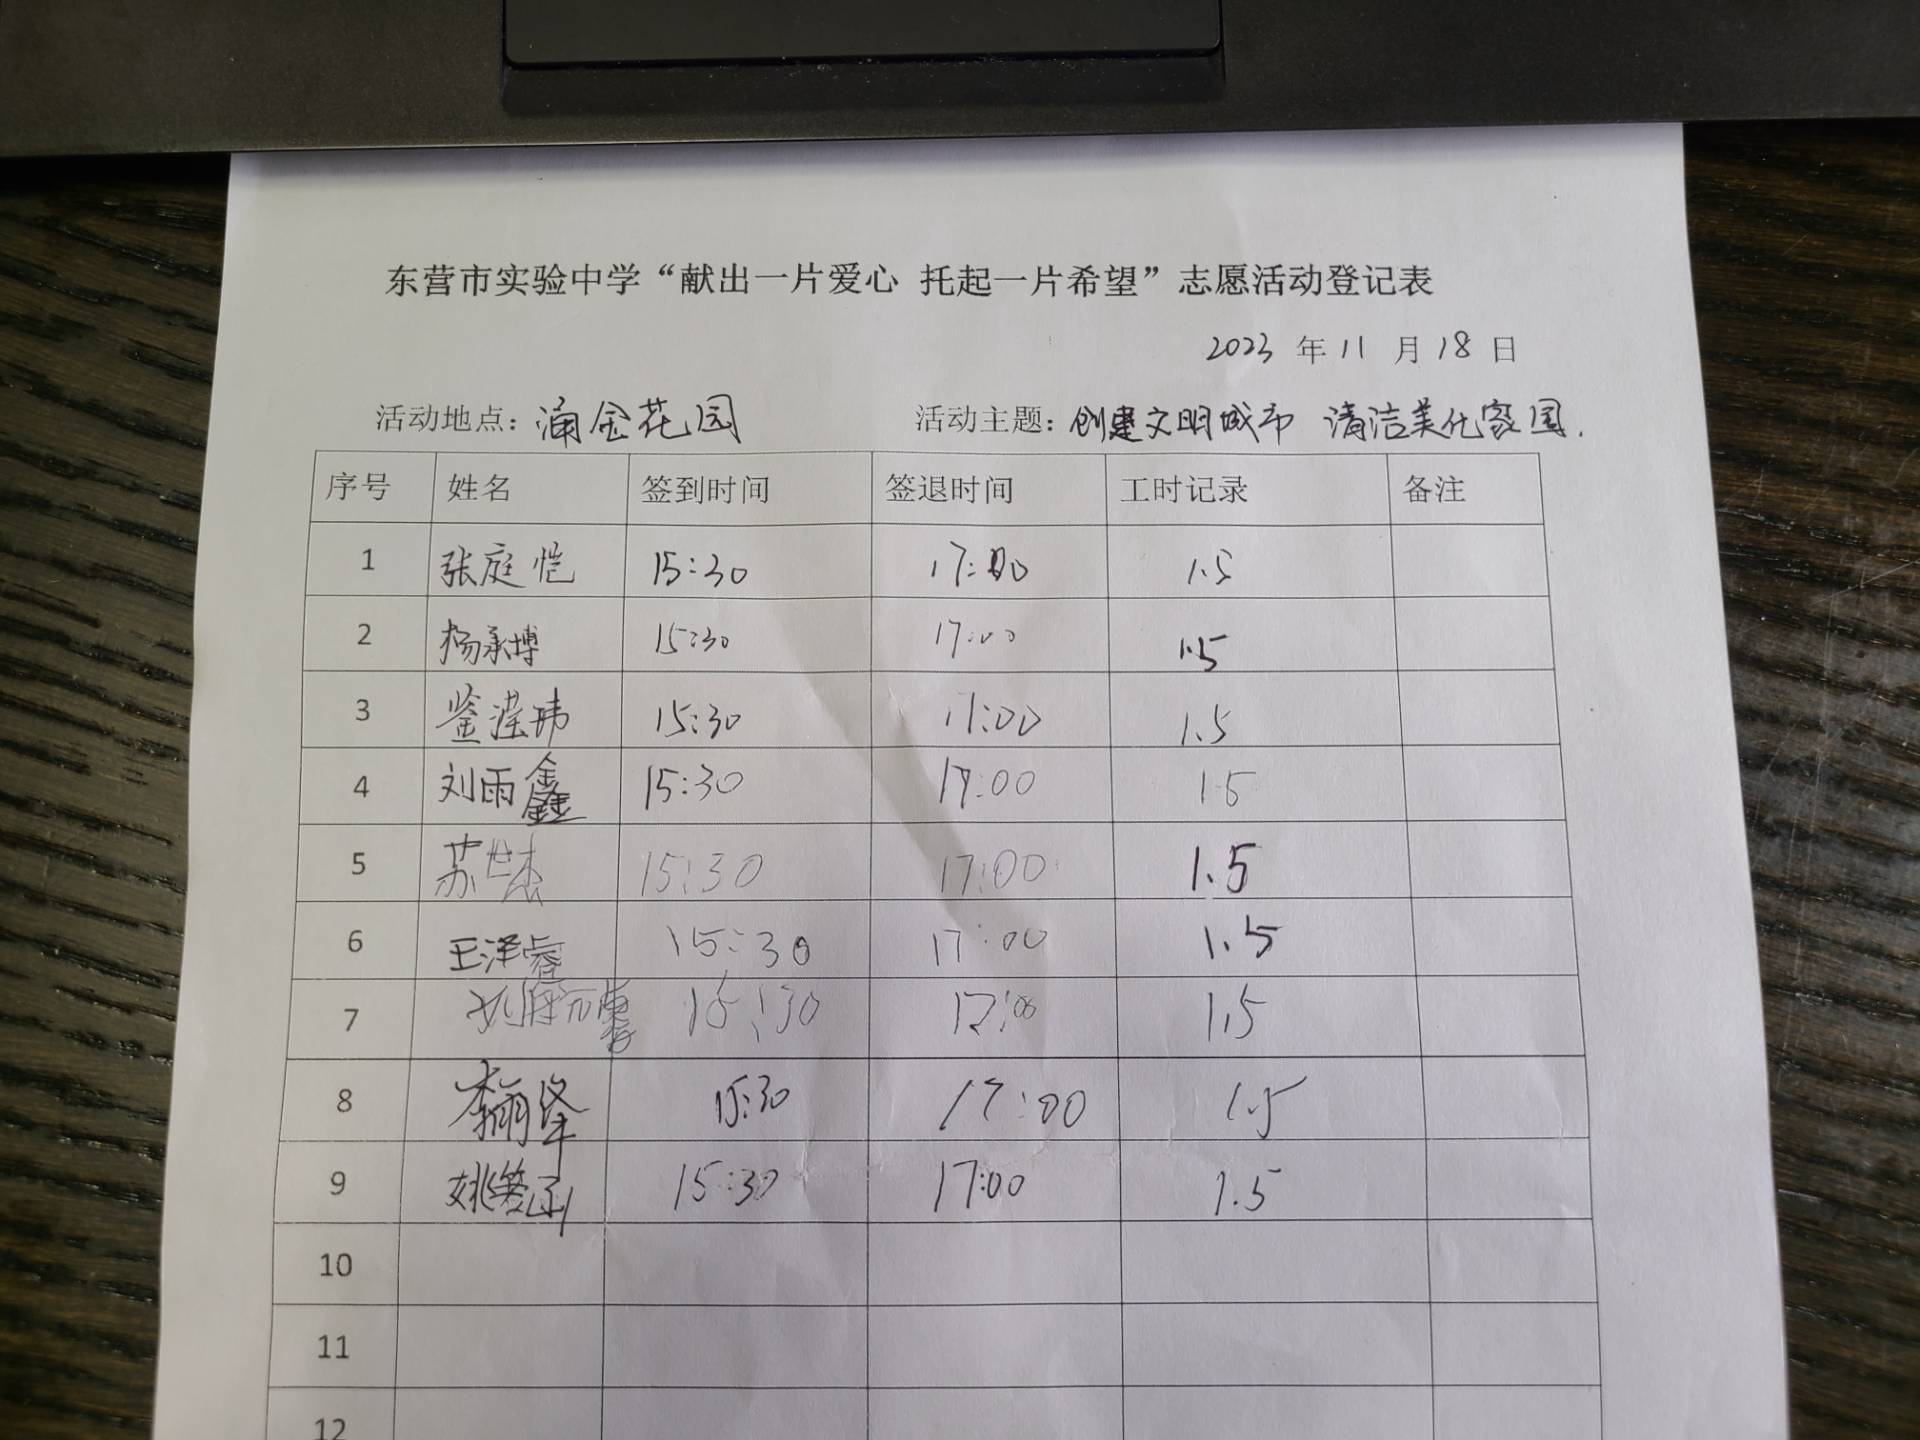 东营市实验中学“献出一片爱心 托起一片希望”志愿活动登记表
2023 年 11 月 18 日
活动地点：涌金花园 活动主题：创建文明城市 清洁美化家园.
序号 姓名 签到时间 签退时间 工时记录 备注
1 张庭恺 15:30 17:00 1.5
2 杨承博 15:30 17:00 1.5
3 15:30 17:00 1.5
4 刘雨鑫 15:30 17:00 1.5
5 苏世杰 15:30 17:00 1.5
6 王泽睿 15:30 17:00 1.5
7 15:30 17:00 1.5
8 15:30 17:00 1.5
9 15:30 17:00 1.5
10
11
12